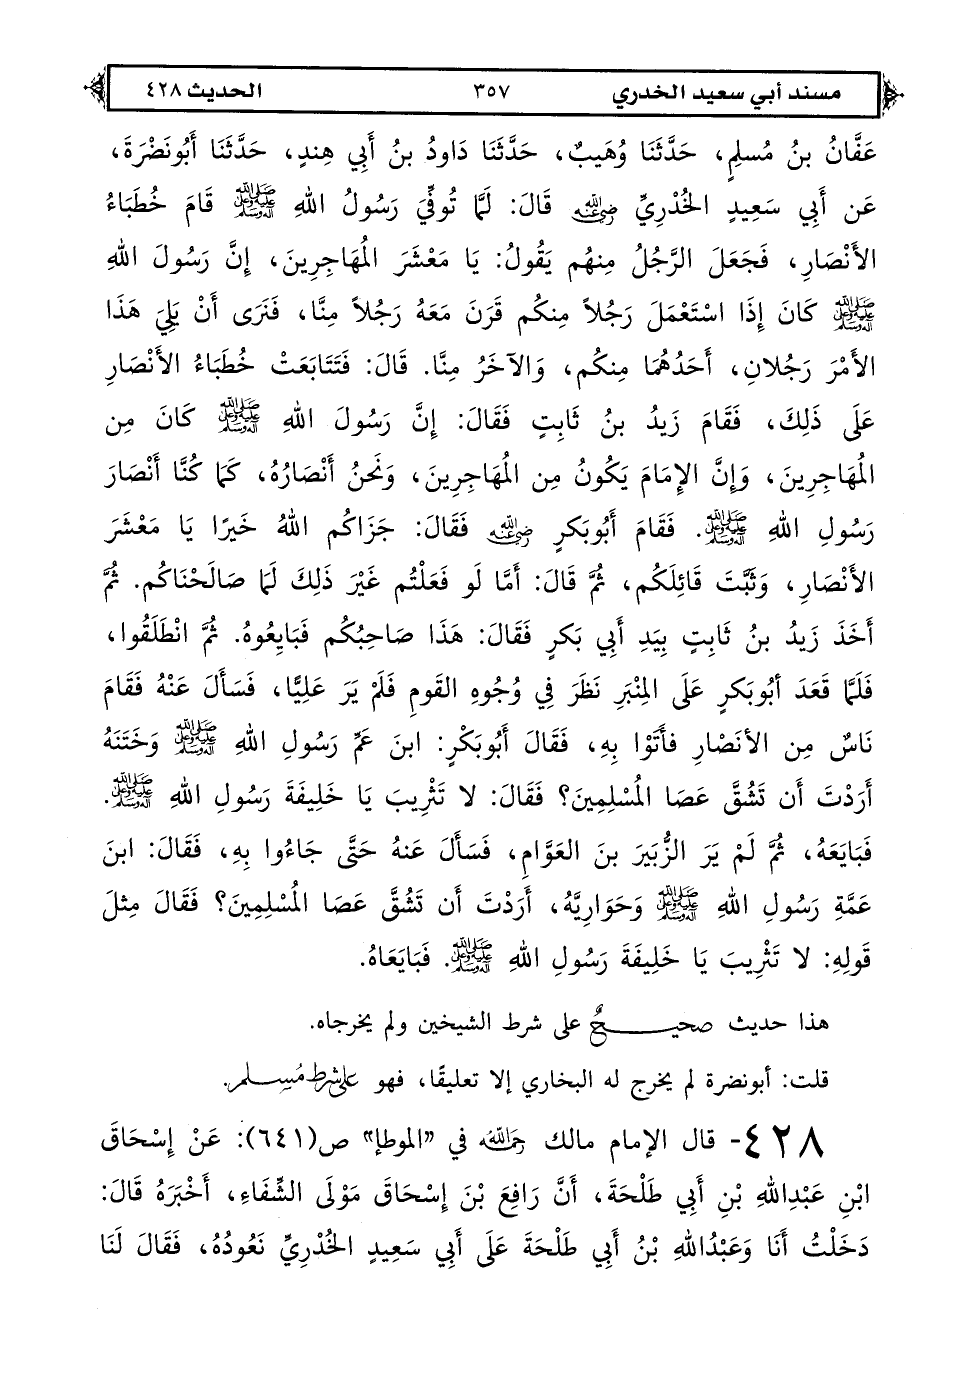 مسند أبي سعيد الخدري ٣٥٧ الحديث ٤٢٨
عَفَّانُ بنُ مُسلِمٍ، حَدَّثَنَا وُهَيبٌ، حَدَّثَنَا دَاودُ بنُ أَبِي هِندٍ، حَدَّثَنَا أَبُونَضْرَةَ،
عَن أَبِي سَعِيدٍ الخُدْرِيِّ رضي الله عنه قَالَ: لَمَّا تُوفِّيَ رَسُولُ اللهِ ﷺ قَامَ خُطَبَاءُ
الأَنْصَارِ، فَجَعَلَ الرَّجُلُ مِنهُم يَقُولُ: يَا مَعْشَرَ المُهَاجِرِينَ، إِنَّ رَسُولَ اللهِ
ﷺ كَانَ إِذَا اسْتَعْمَلَ رَجُلاً مِنكُم قَرَنَ مَعَهُ رَجُلاً مِنَّا، فَنَرَى أَنْ يَلِيَ هَذَا
الأَمْرَ رَجُلانِ، أَحَدُهُمَا مِنكُم، وَالآخَرُ مِنَّا. قَالَ: فَتَتَابَعَتْ خُطَبَاءُ الأَنْصَارِ
عَلَى ذَلِكَ، فَقَامَ زَيدُ بنُ ثَابِتٍ فَقَالَ: إِنَّ رَسُولَ اللهِ ﷺ كَانَ مِن
المُهَاجِرِينَ، وَإِنَّ الإِمَامَ يَكُونُ مِن المُهَاجِرِينَ، وَنَحنُ أَنْصَارُهُ، كَمَا كُنَّا أَنْصَارَ
رَسُولِ اللهِ ﷺ. فَقَامَ أَبُوبَكرٍ رضي الله عنه فَقَالَ: جَزَاكُم اللهُ خَيرًا يَا مَعْشَرَ
الأَنْصَارِ، وَثَبَّتَ قَائِلَكُم، ثُمَّ قَالَ: أَمَّا لَو فَعَلْتُم غَيْرَ ذَلِكَ لَمَا صَالَحْنَاكُم. ثُمَّ
أَخَذَ زَيدُ بنُ ثَابِتٍ بِيَدِ أَبِي بَكرٍ فَقَالَ: هَذَا صَاحِبُكُم فَبَايِعُوهُ. ثُمَّ انْطَلَقُوا،
فَلَمَّا قَعَدَ أَبُوبَكرٍ عَلَى المِنْبَرِ نَظَرَ فِي وُجُوهِ القَومِ فَلَمْ يَرَ عَلِيًّا، فَسَأَلَ عَنْهُ فَقَامَ
نَاسٌ مِن الأَنصَارِ فَأَتَوْا بِهِ، فَقَالَ أَبُوبَكْرٍ: ابنَ عَمِّ رَسُولِ اللهِ ﷺ وَخَتَنَهُ
أَرَدْتَ أَن تَشُقَّ عَصَا المُسْلِمِينَ؟ فَقَالَ: لا تَثْرِيبَ يَا خَلِيفَةَ رَسُولِ اللهِ ﷺ.
فَبَايَعَهُ، ثُمَّ لَمْ يَرَ الزُّبَيرَ بنَ العَوَّامِ، فَسَأَلَ عَنهُ حَتَّى جَاءُوا بِهِ، فَقَالَ: ابنَ
عَمَّةِ رَسُولِ اللهِ ﷺ وَحَوَارِيَّهُ، أَرَدْتَ أَن تَشُقَّ عَصَا المُسْلِمِينَ؟ فَقَالَ مِثلَ
قَولِهِ: لا تَثْرِيبَ يَا خَلِيفَةَ رَسُولِ اللهِ ﷺ. فَبَايَعَاهُ.
هذا حديث صحيحٌ على شرط الشيخين ولم يخرجاه.
قلت: أبونضرة لم يخرج له البخاري إلا تعليقًا، فهو على شرط مُسلم.
٤٢٨- قال الإمام مالك رحمه الله في "الموطإ" ص(٦٤١): عَنْ إِسْحَاقَ
ابْنِ عَبْدِاللهِ بْنِ أَبِي طَلْحَةَ، أَنَّ رَافِعَ بْنَ إِسْحَاقَ مَوْلَى الشِّفَاءِ، أَخْبَرَهُ قَالَ:
دَخَلْتُ أَنَا وَعَبْدُاللهِ بْنُ أَبِي طَلْحَةَ عَلَى أَبِي سَعِيدٍ الخُدْرِيِّ نَعُودُهُ، فَقَالَ لَنَا